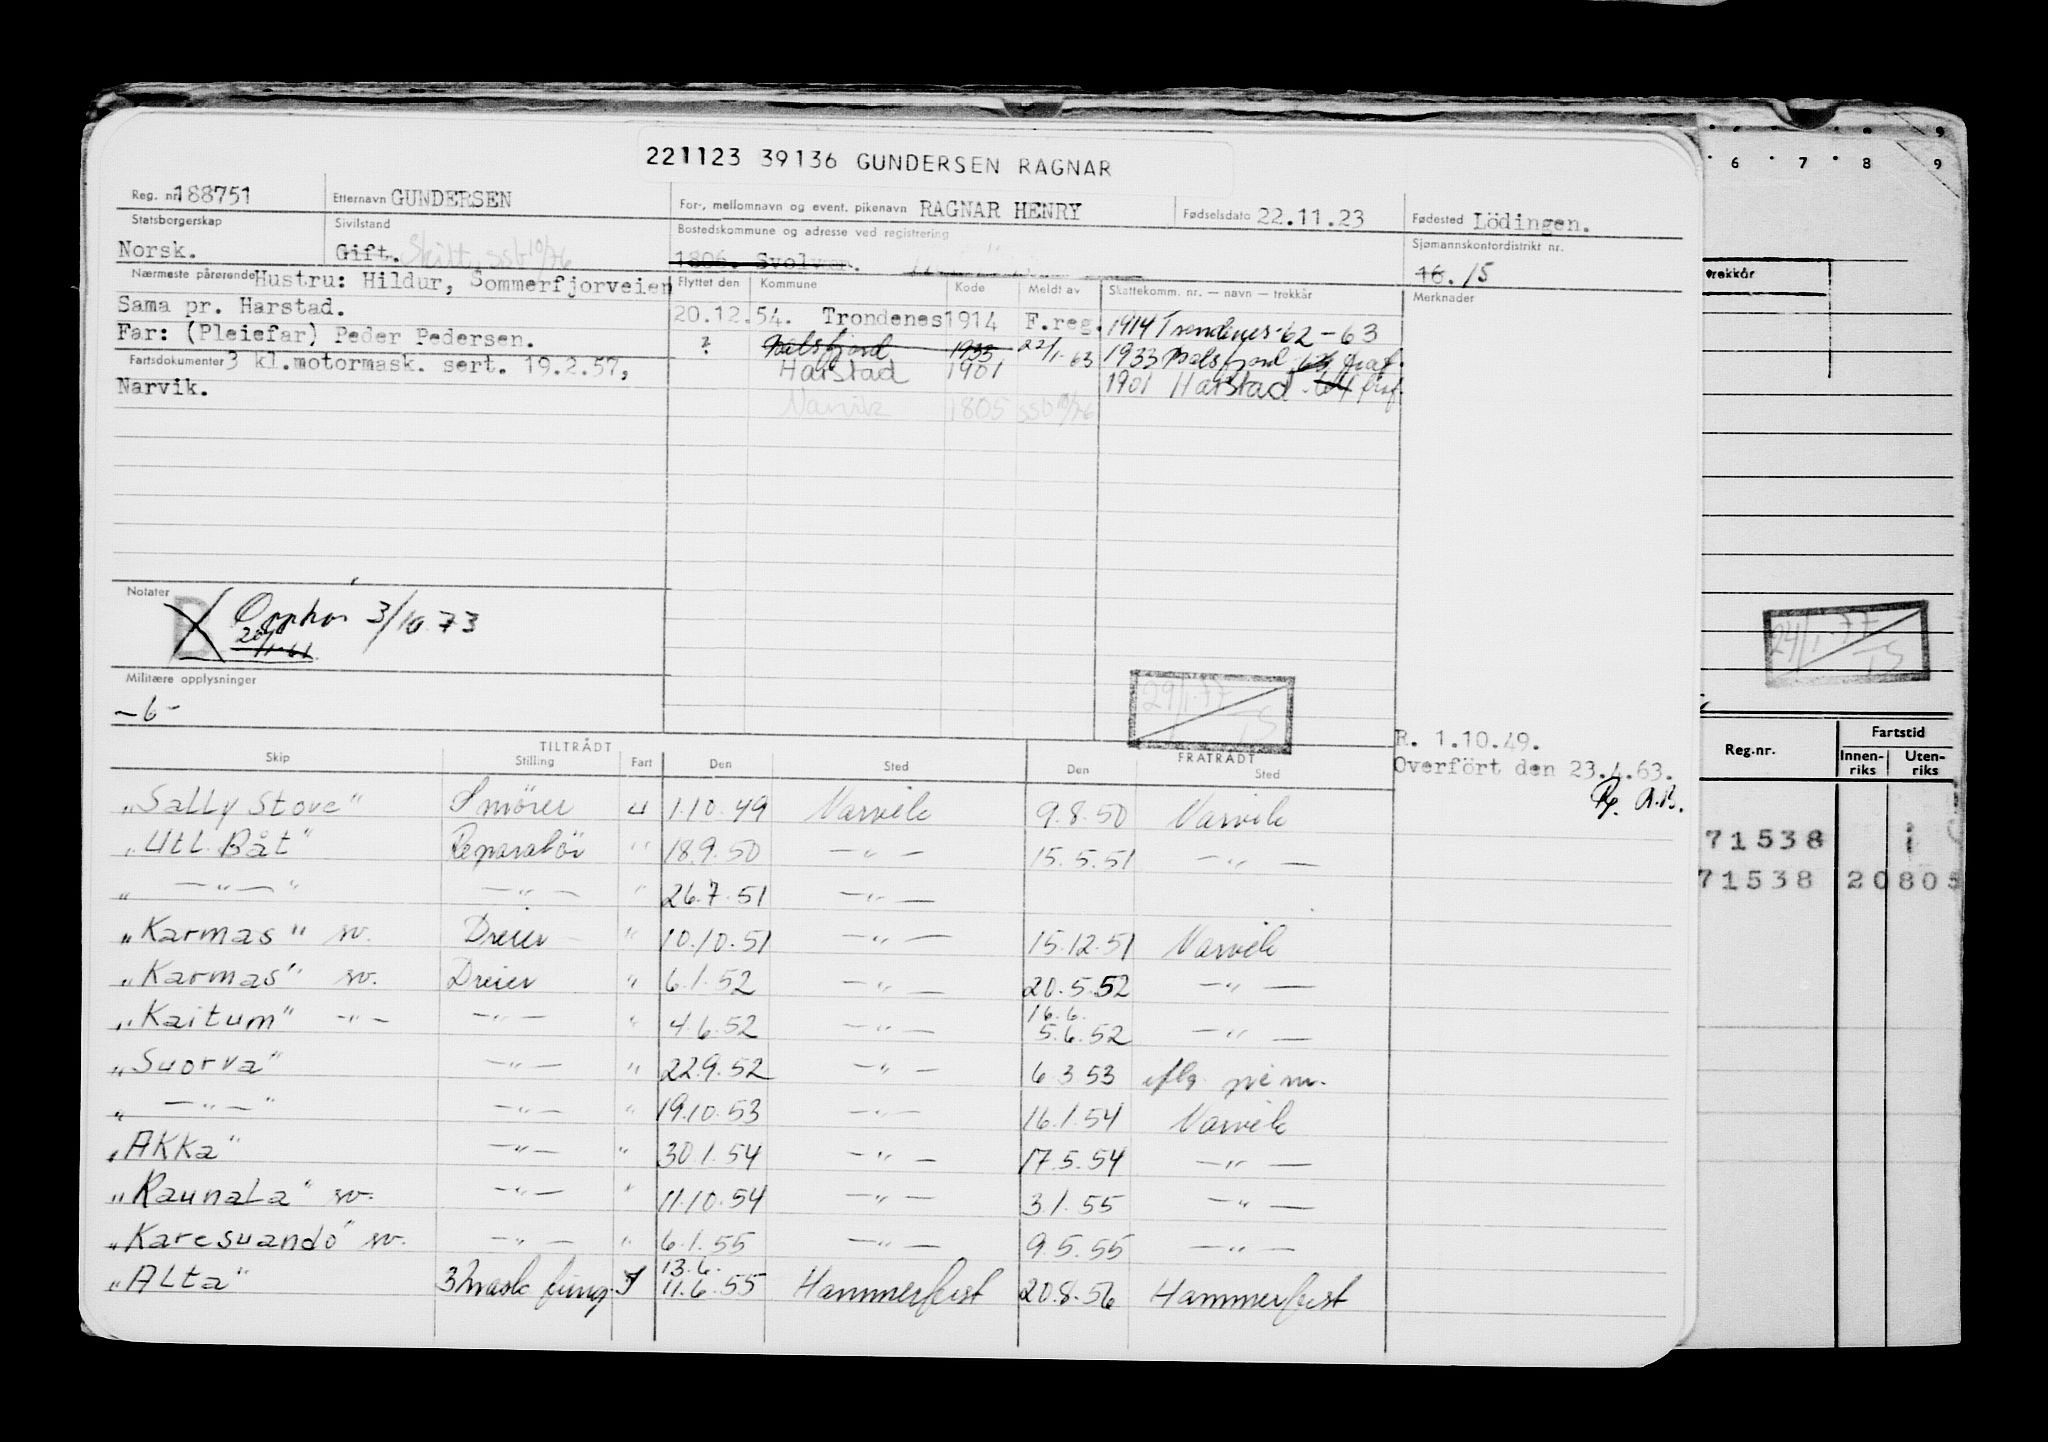 221123 39136 GUNDERSEN RAGNAR
6 7 8 9
9
Reg. nr. 188751 Etternavn GUNDERSEN For-, mellomnavn og event. pikenavn RAGNAR HENRY Fødselsdato 22.11.23 Fødested Lödingen.
Statsborgerskap Norsk. Sivilstand Gift. Skilt, SSB 10/76 Bostedskommune og adresse ved registrering 1806. Svolvær. Sjømannskontordistrikt nr. 16. 15
Nærmeste pårørende Hustru: Hildur, Sommerfjorveien
Sama pr. Harstad.
Far: (Pleiefar) Peder Pedersen.
Fartsdokumenter 3 kl.motormask. sert. 19.2.57,
Narvik.
Flyttet den Kommune Kode Meldt av Skattekomm. nr. — navn — trekkår Merknader
20.12.54. Trondenes 1914 F.reg. 1914 Trondenes-62-63
? Balsfjord 1933 22/1-63 1933 Balsfjord
Harstad 1901 1901 Harstad -64
Narvik 1805 SSB 10/76
trekkår
Notater
B Opphør 3/10.73
Militære opplysninger
-6-
29/1-77 TS
24/1-77 TS
R. 1.10.49.
Overfört den 23.4.63.
A.B.
TILTRÅDT FRATRÅDT
Skip Stilling Fart Den Sted Den Sted
"Sally Stove" Smører U 1.10.49 Narvik 9.8.50 Narvik
"Utl. Båt" Reparatör " 18.9.50 —"— 15.5.51 —"—
" —"— " —"— " 26.7.51 —"—
"Karmas" sv. Dreier " 10.10.51 —"— 15.12.51 Narvik
"Karmas" sv. Dreier " 6.1.52 —"— 20.5.52 —"—
"Kaitum" -"- —"— " 4.6.52 —"— 16.6. 5.6.52 —"—
"Suorva" —"— " 22.9.52 —"— 6.3.53
" —"— " —"— " 19.10.53 —"— 16.1.54 Narvik
"Akka" —"— " 30.1.54 —"— 17.5.54 —"—
"Raunala" sv. —"— " 11.10.54 —"— 3.1.55 —"—
"Karesuando" sv. —"— " 6.1.55 —"— 9.5.55 —"—
"Alta" 3 mask fung. 13.6. 11.6.55 Hammerfest 20.8.56 Hammerfest
Reg.nr. Fartstid
Innen-riks Uten-riks
71538 i
71538 20805